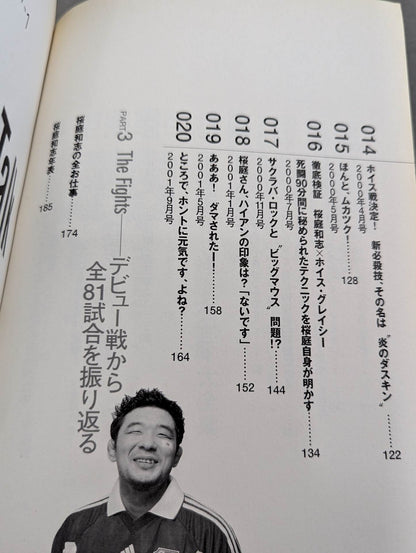 014
ホイス戦決定! 新必殺技、その名は〝炎のダスキン〟
2000年4月号
122
015
ほんと、ムカツク!
2000年5月号
128
016
徹底検証 桜庭和志×ホイス・グレイシー
死闘90分間に秘められたテクニックを桜庭自身が明かす
2000年7月号
134
017
サクラバ・ロックと〝ビッグマウス〟問題!?
2000年11月号
144
018
桜庭さん、ハイアンの印象は?「ないです」
2001年1月号
152
019
あああ! ダマされたー!
2001年5月号
158
020
ところで、ホントに元気です、よね?
2001年9月号
164
PART3 The Fights——デビュー戦から
全81試合を振り返る
桜庭和志の全お仕事
174
桜庭和志年表
185